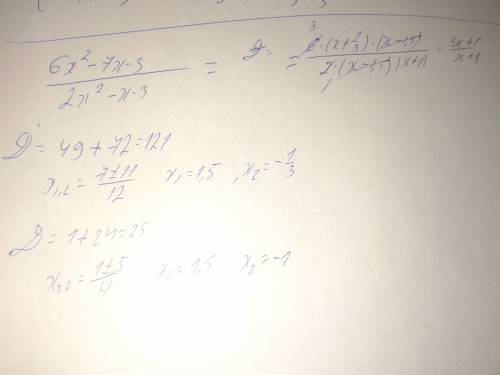 (6x²-7x-3)/(2x²-x-3) = D= = (6·(x+1/3)·(x-1,5))/(2·(x-1,5)(x+1)) = (3x+1)/(x+1)
D = 49+72=121
x₁,₂ = (7±11)/12 x₁=1,5 ; x₂=-1/3
D = 1+24=25
x₁,₂ = (1±5)/4 x₁=1,5 x₂=-1